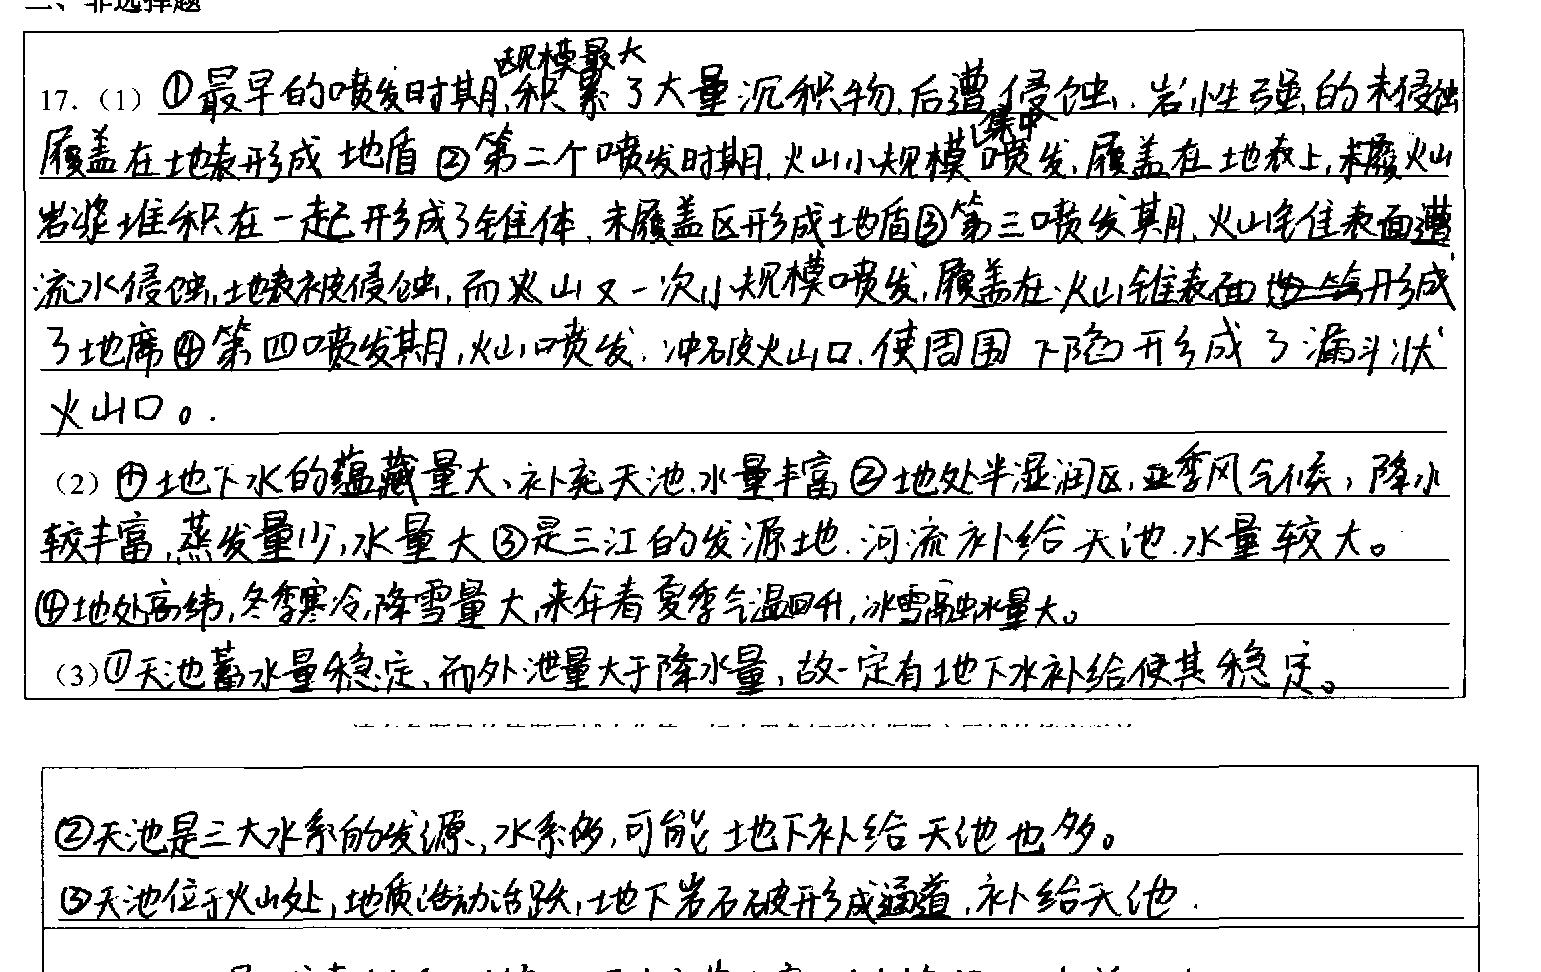 二、非选择题
规模最大
17.（1）①最早的喷发时期,积累了大量沉积物,后遭侵蚀.岩性强的未侵蚀
集中
履盖在地表形成地盾②第二个喷发时期,火山小规模喷发,履盖在地表上,未履火山
岩浆堆积在一起形成了锥体.未履盖区形成地盾③第三喷发期,火山锥表面遭
流水侵蚀,地表被侵蚀,而火山又一次小规模喷发,履盖在火山锥表面形成
了地席④第四喷发期,火山喷发.冲破火山口.使周围下陷形成了漏斗状
火山口。.
（2）①地下水的蕴藏量大、补充天池.水量丰富②地处半湿润区,亚季风气候,降水
较丰富,蒸发量少,水量大③是三江的发源地.河流补给天池.水量较大。
④地处高纬,冬季寒冷,降雪量大,来年春夏季气温回升,冰雪融水量大。
（3）①天池蓄水量稳定、而外泄量大于降水量,故一定有地下水补给使其稳定。
②天池是三大水系的发源、水系多,可能地下补给天池也多。
③天池位于火山处,地质活动活跃,地下岩石破形成通道,补给天池.